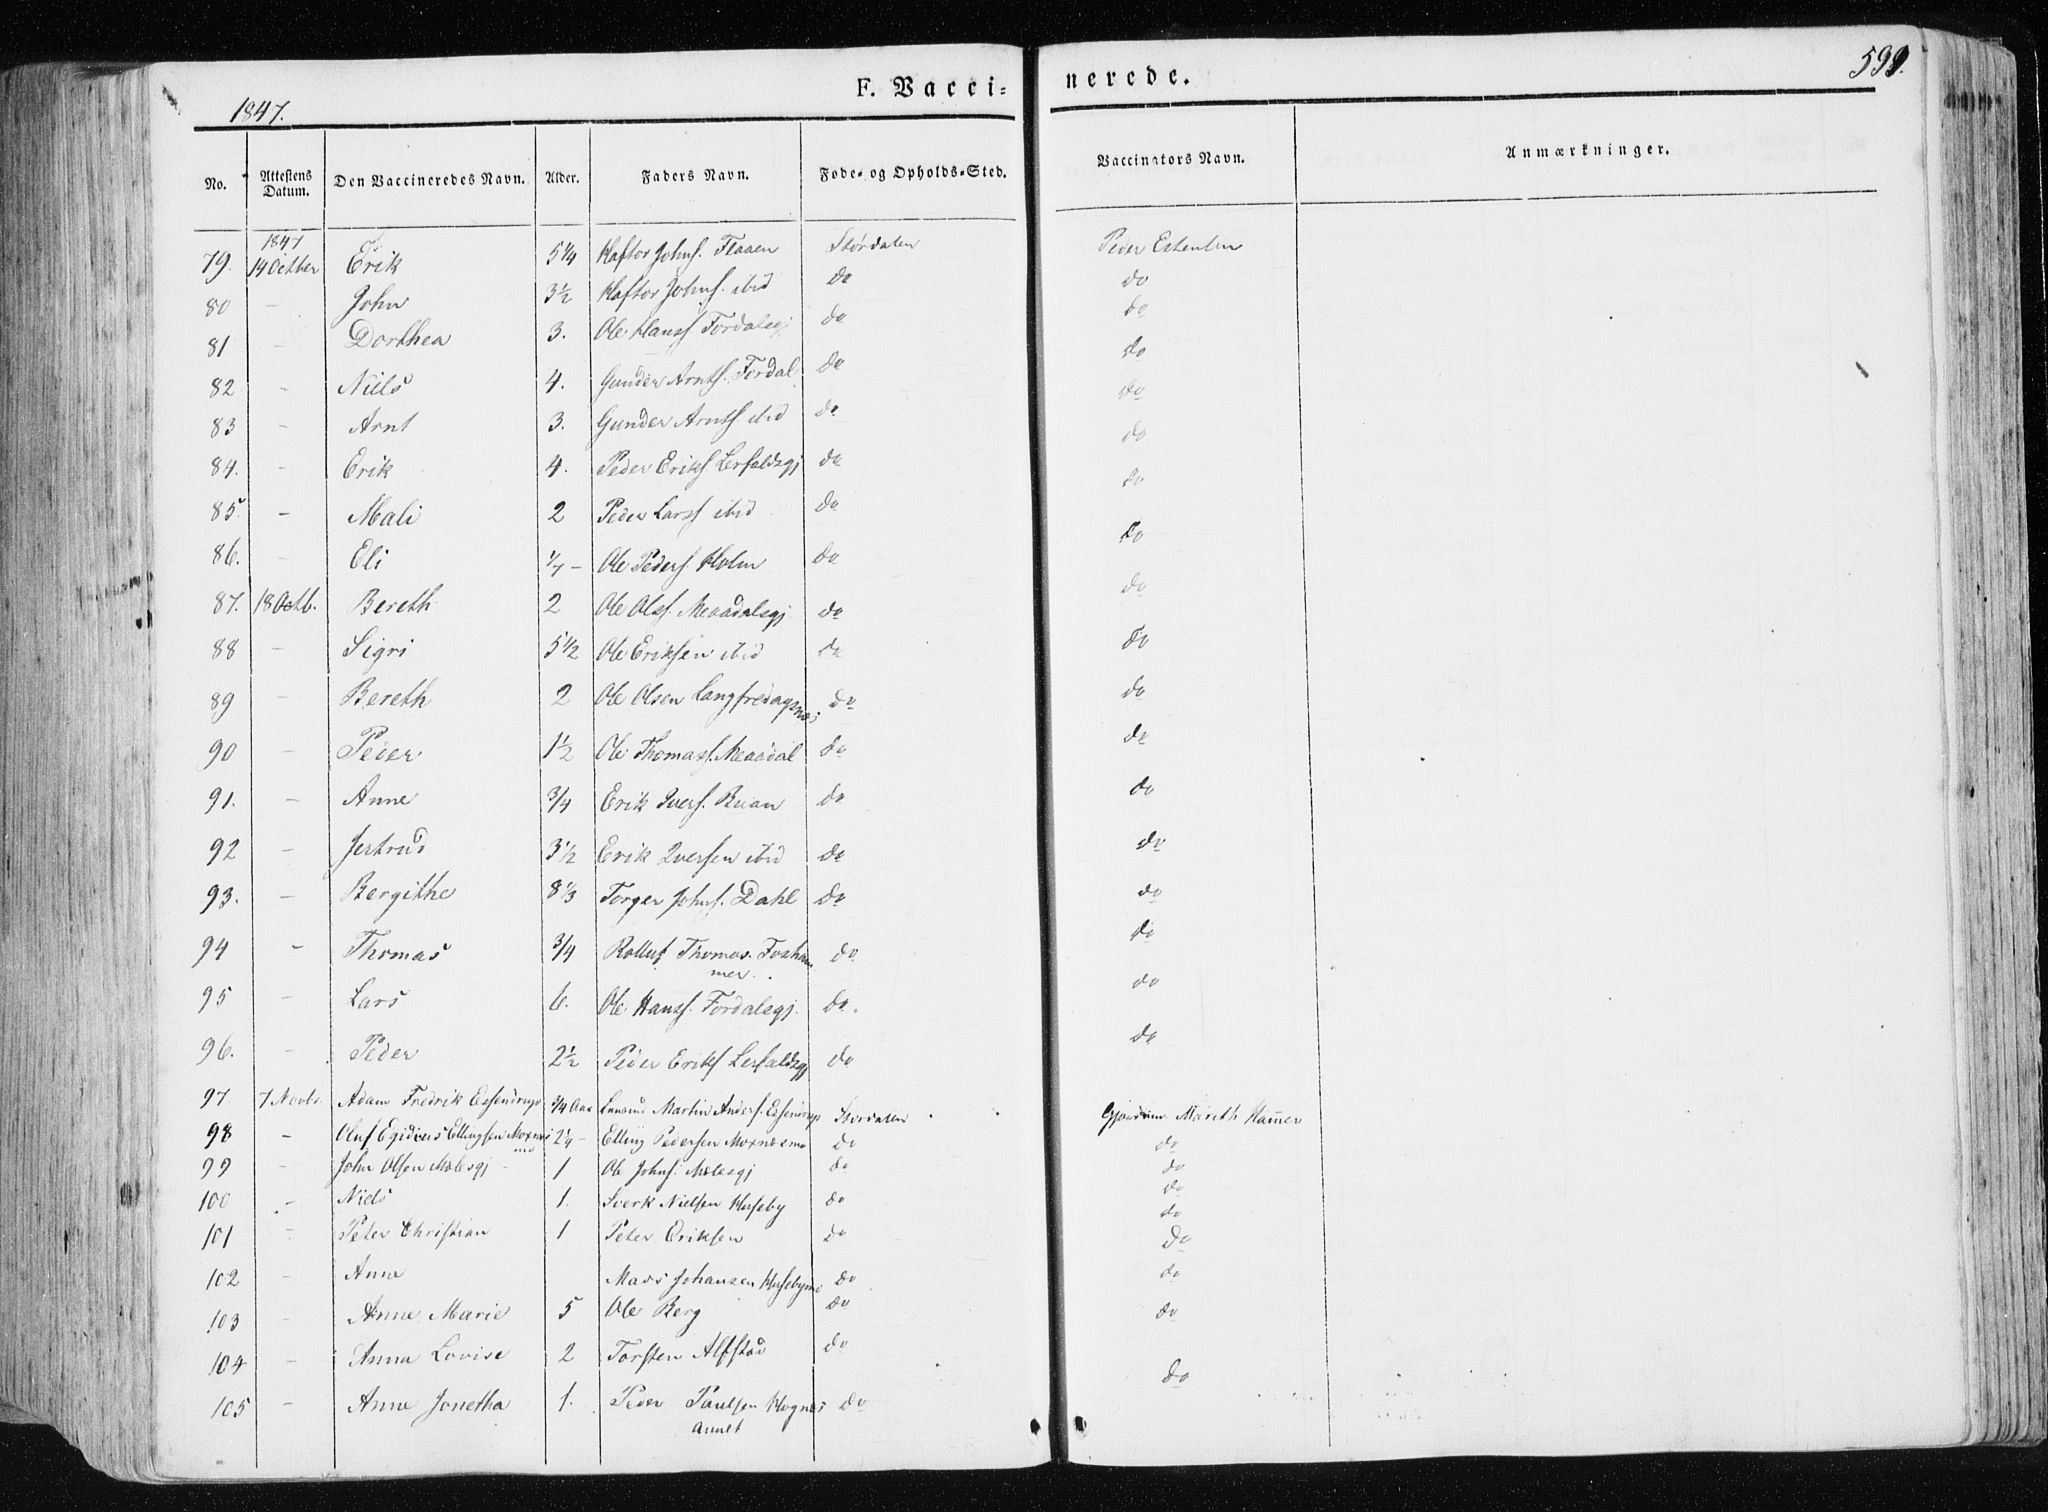 1847.
F. Vacci=
nerede.
599.
No. Attestens Datum. Den Vaccineredes Navn. Alder. Faders Navn. Føde- og Opholds-Sted. Vaccinators Navn. Anmærkninger.
1847
79. 14 Octber Erik 5 1/4 Haftor Johns. Flaaen Størdalen Peder Estensen
80 - John 3 1/2 Haftor Johns. ibid do do
81 - Dorthea 3. Ole Hanss Fordalsgj do do
82 - Niels 4. Gunder Arnts. Fordal do do
83 - Arnt 3. Gunder Arnts ibid do do
84. - Erik 4. Peder Eriks Lerfaldsgj do do
85. - Mali 2 Peder Larss ibid do do
86. - Eli 1/7 - Ole Peders. Holm do do
87. 18 Octb. Bereth 2 Ole Olss. Meaadalsgj do do
88 - Sigri 5 1/2 Ole Eriksen ibid do do
89 - Bereth 2 Ole Olsen Langfredagsnæs do do
90 - Peder 1 1/2 Ole Thomass. Meaadal do do
91. - Anne 3/4 Erik Ivers. Ruan do do
92 - Jertrud 3 1/2 Erik Iversen ibid do do
93. - Bergithe 8 1/3 Torger Johns. Dahl do do
94 - Thomas 3/4 Rolluf Thomas. Foshammer. do do
95 - Lars 6. Ole Hanss. Fordalsgj. do. do
96. - Peder 2 1/2 Peder Eriks Lerfaldsgj do do
97 7 Novbr Adam Fredrik Essendrup 3/4 Aar Martin Anders. Essendrup Stordalen Mareth Hamer
98 - Oluf Egidius Ellingsen Moxnæs 2 1/4 - Elling Pedersen Moxnæs do do
99 - John Olsen Mælesgj - 1 Ole Johns. Mælesgj do do
100 - Niels 1. Sverk Nielsen Huseby do do
101 - Peter Christian 1 Peter Eriksen do do
102 - Anne Mads Johansen do do
103 - Anne Marie 5 Ole Berg do do
104 - Anna Lovise 2 Torsten Alfstad do do
105 - Anne Jonetha 1. Peder Paulsen Hognæs do do